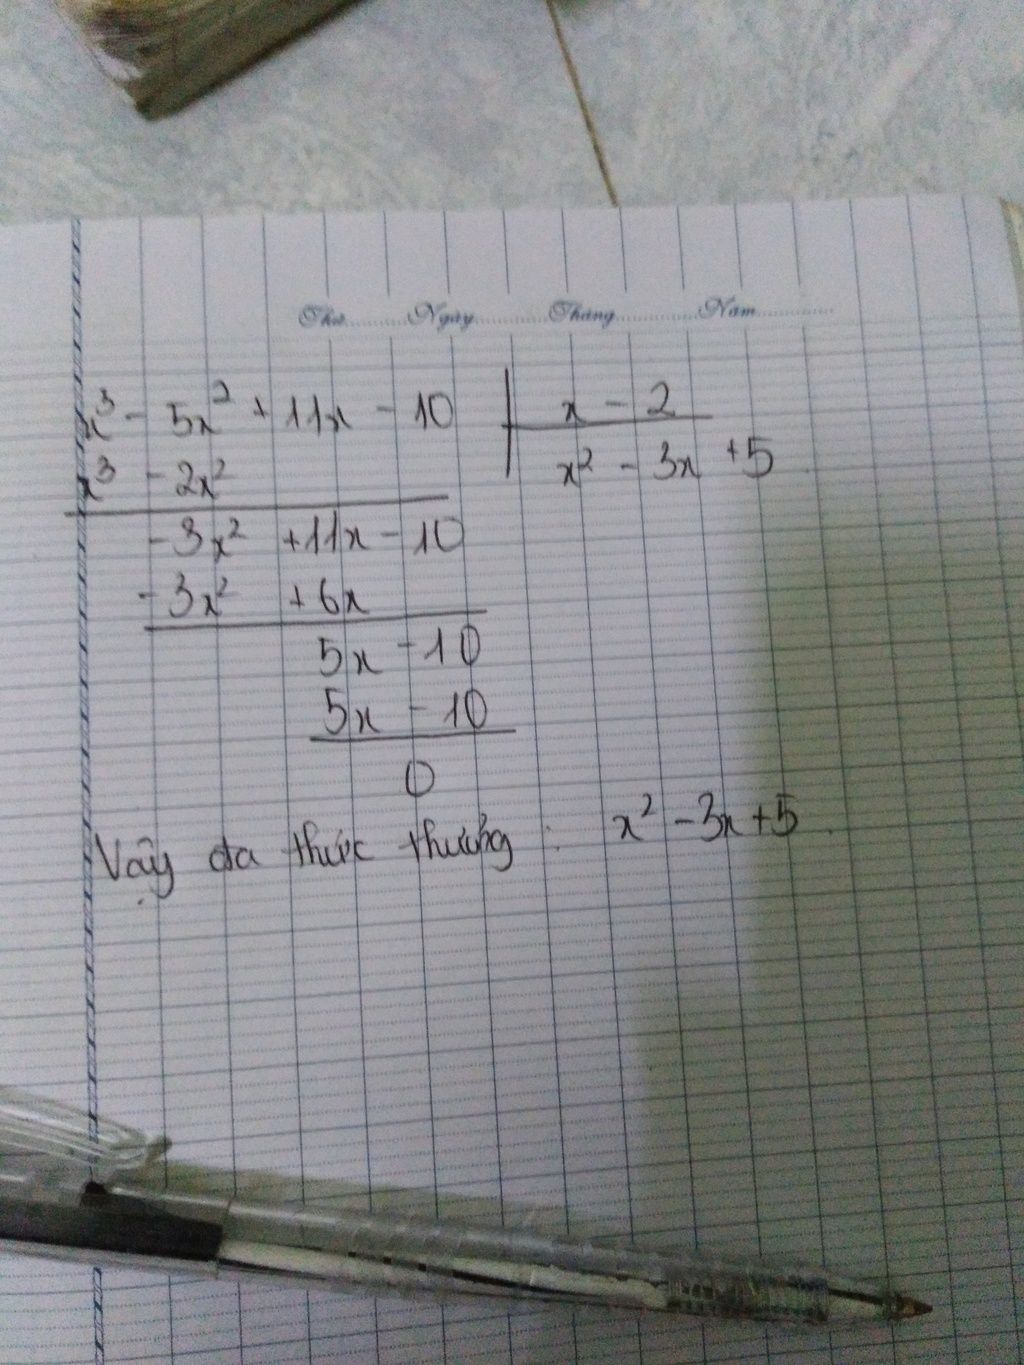 Thứ..........Ngày............Tháng............Năm............
x³ - 5x² + 11x - 10 | x - 2
x³ - 2x² | x² - 3x + 5
- 3x² + 11x - 10
- 3x² + 6x
5x - 10
5x - 10
0
Vậy đa thức thương : x² - 3x + 5.